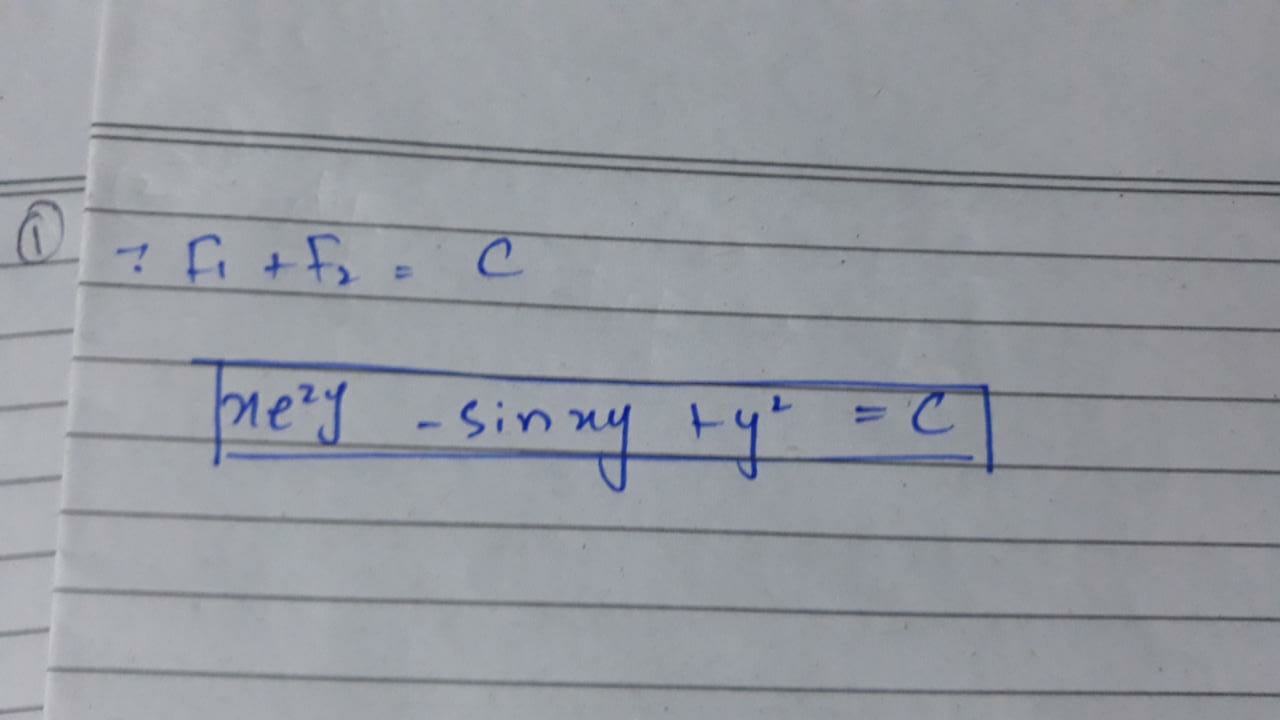 ①
∴ F₁ + F₂ = C
xe²y - sin xy + y² = C